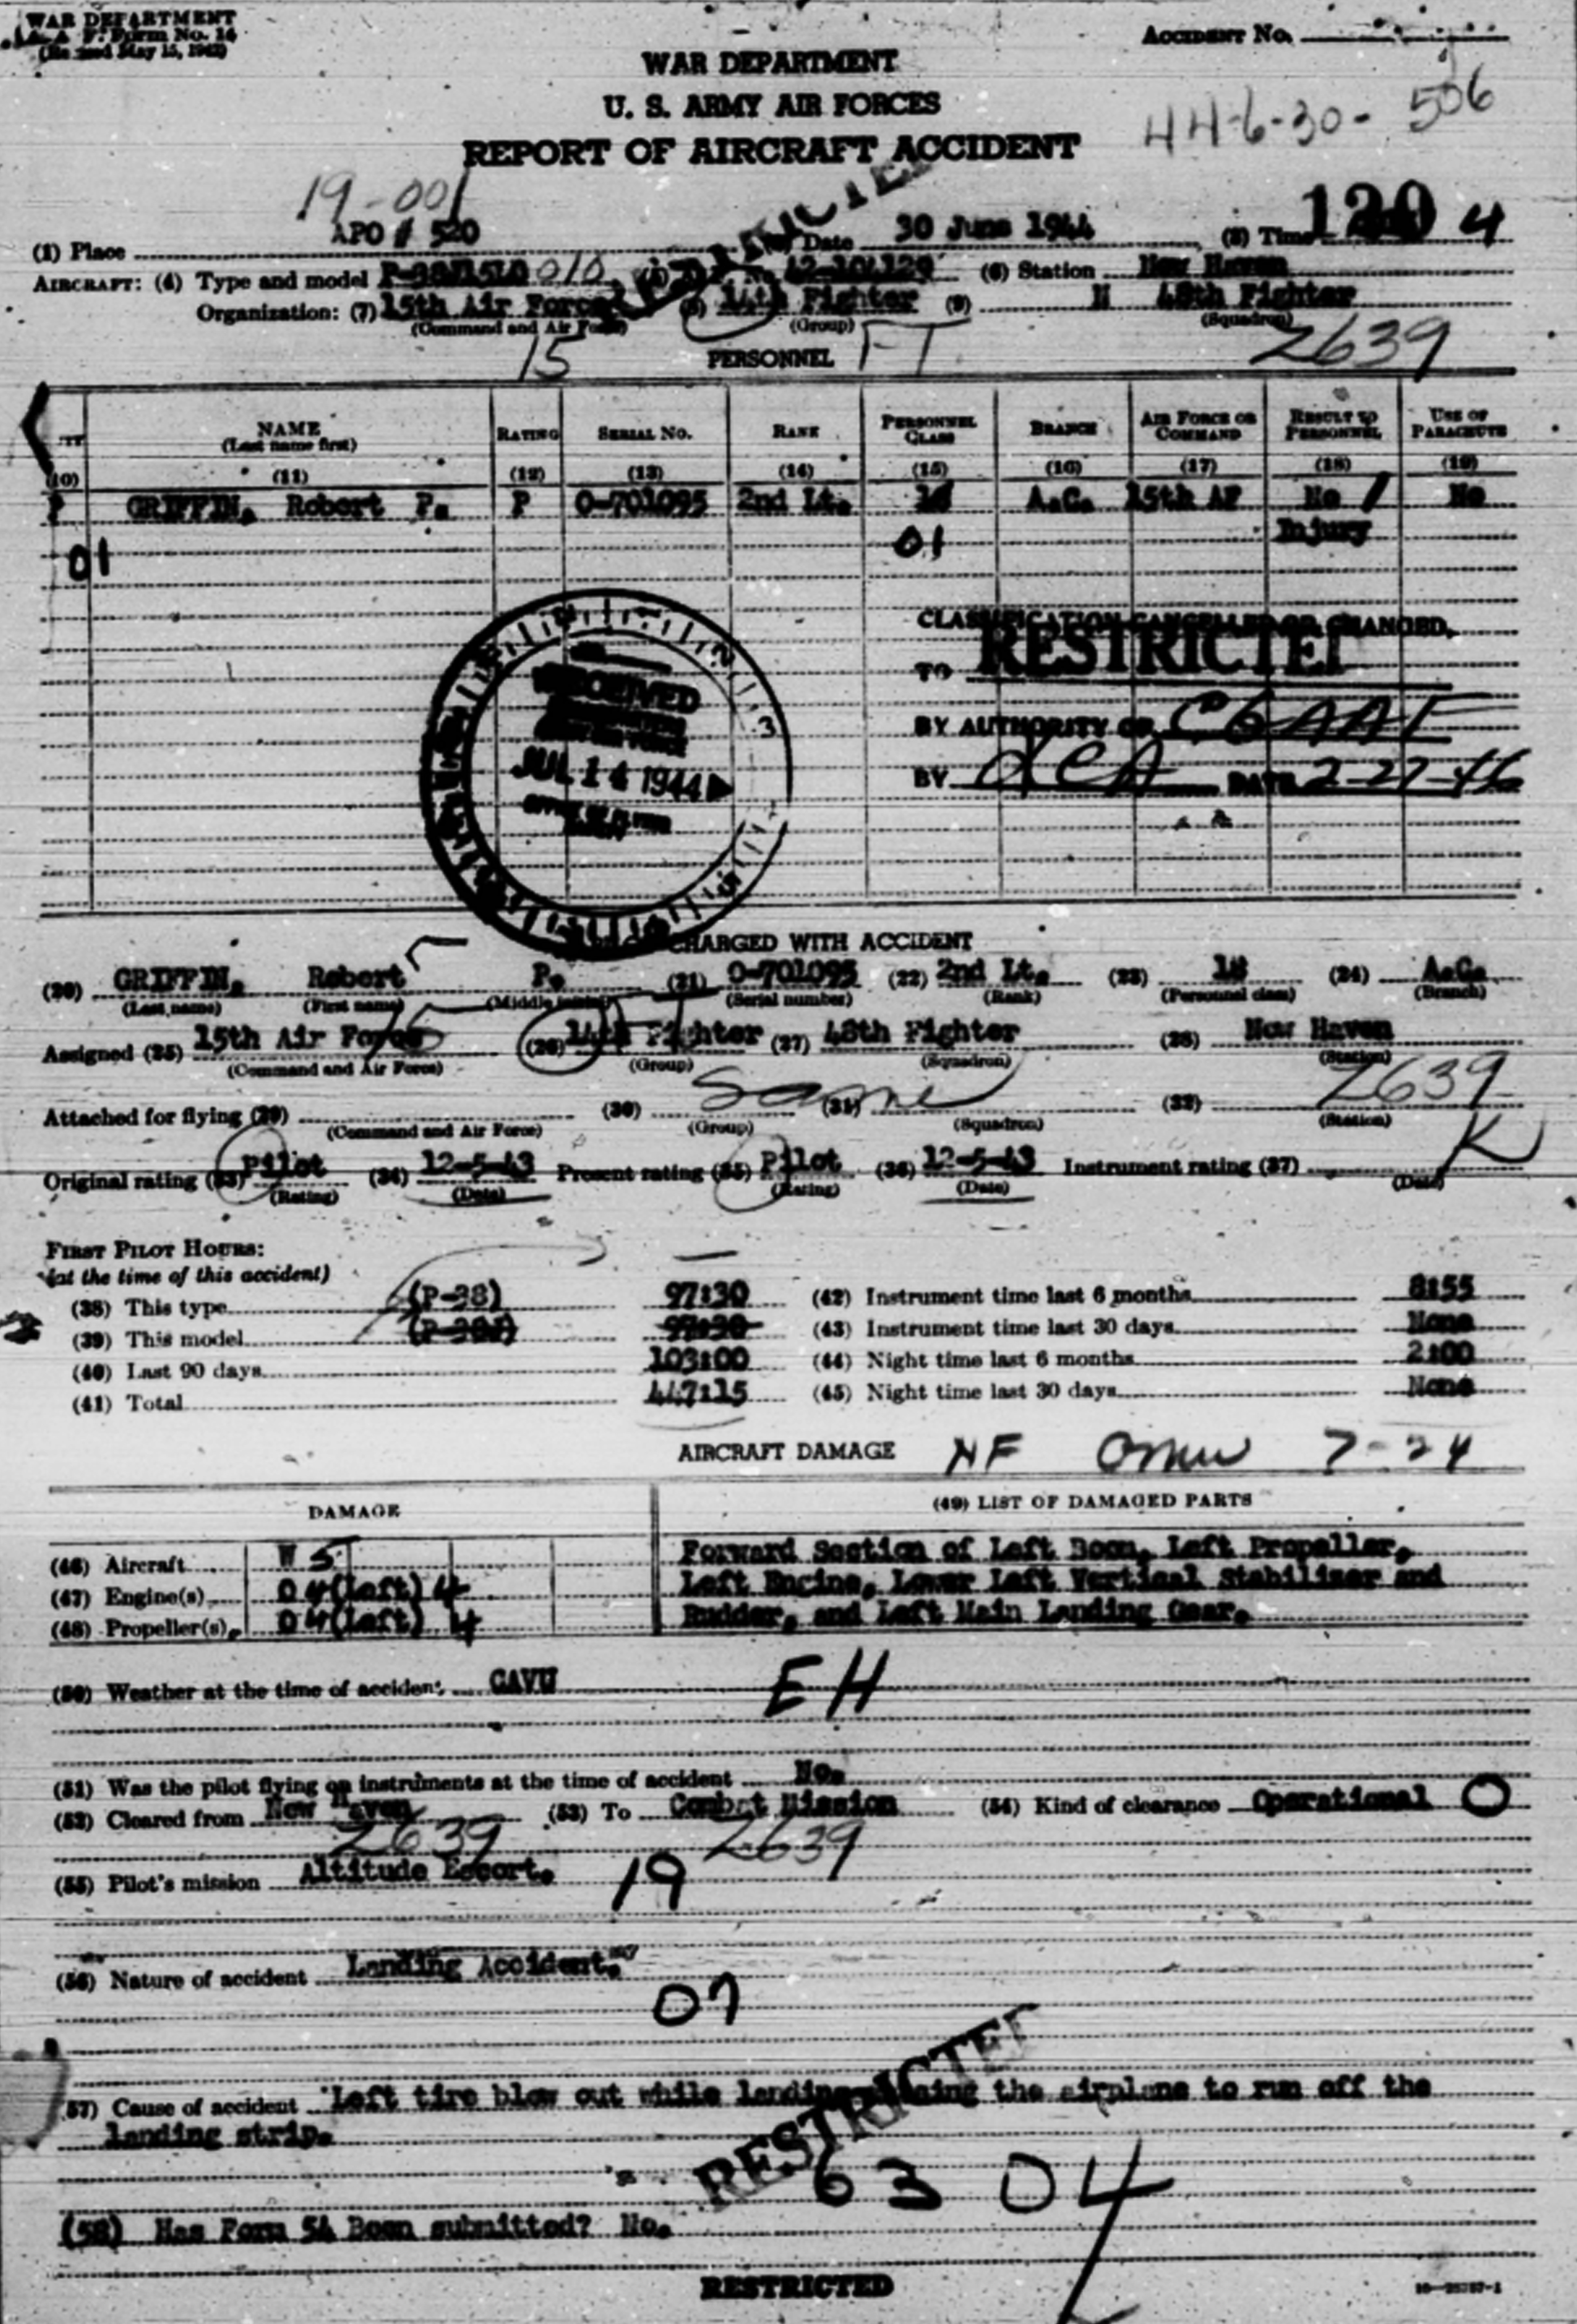 WAR DEPARTMENT
A. A. F. Form No. 14
(Revised May 15, 1942)
ACCIDENT No.
WAR DEPARTMENT
U. S. ARMY AIR FORCES
REPORT OF AIRCRAFT ACCIDENT
44-6-30-506
19-001
(1) Place APO # 520 Date 30 June 1944 (3) Time 1200 4
AIRCRAFT: (4) Type and model 010 (6) Station New Haven
Organization: (7) 15th Air Force (8) 14th Fighter (9) 48th Fighter
(Command and Air Force) (Group) (Squadron)
15 PERSONNEL FT 2639
NAME RATING SERIAL NO. RANK PERSONNEL CLASS BRANCH AIR FORCE OR COMMAND RESULT TO PERSONNEL USE OF PARACHUTE
(Last name first)
(10) (11) (12) (13) (14) (15) (16) (17) (18) (19)
P GRIFFIN, Robert P. P O-701095 2nd Lt. 18 A.C. 15th AF No Injury No
01 01
RECEIVED
JUL 14 1944
CLASSIFICATION CANCELLED OR CHANGED
TO RESTRICTED
BY AUTHORITY OF CGAAF
BY DATE 2-27-46
CHARGED WITH ACCIDENT
(20) GRIFFIN, Robert P. (21) O-701095 (22) 2nd Lt. (23) 18 (24) A.C.
(Last name) (First name) (Middle initial) (Serial number) (Rank) (Personnel class) (Branch)
Assigned (25) 15th Air Force (26) 14th Fighter (27) 48th Fighter (28) New Haven
(Command and Air Force) (Group) (Squadron) (Station)
Attached for flying (29) (30) Same (31) (32) 2639
(Command and Air Force) (Group) (Squadron) (Station)
Original rating (33) Pilot (34) 12-5-43 Present rating (35) Pilot (36) 12-5-43 Instrument rating (37) K
(Rating) (Date) (Rating) (Date) (Date)
FIRST PILOT HOURS:
(at the time of this accident)
(38) This type (P-38) 97:30 (42) Instrument time last 6 months 8:55
(39) This model (P-38J) 97:30 (43) Instrument time last 30 days None
(40) Last 90 days 103:00 (44) Night time last 6 months 2:00
(41) Total 447:15 (45) Night time last 30 days None
AIRCRAFT DAMAGE NF 7-24
DAMAGE (49) LIST OF DAMAGED PARTS
(46) Aircraft W 5 Forward Section of Left Boom, Left Propeller,
(47) Engine(s) O 4 (left) 4 Left Engine, Lower Left Vertical Stabilizer and
(48) Propeller(s) O 4 (left) 4 Rudder, and Left Main Landing Gear.
(50) Weather at the time of accident CAVU EH
(51) Was the pilot flying on instruments at the time of accident No.
(52) Cleared from New Haven (53) To Combat Mission (54) Kind of clearance Operational O
2639 2639
(55) Pilot's mission Altitude Escort. 19
(56) Nature of accident Landing Accident.
07
(57) Cause of accident Left tire blow out while landing causing the airplane to run off the
landing strip.
RESTRICTED
63 04
(58) Has Form 54 Been submitted? No.
RESTRICTED